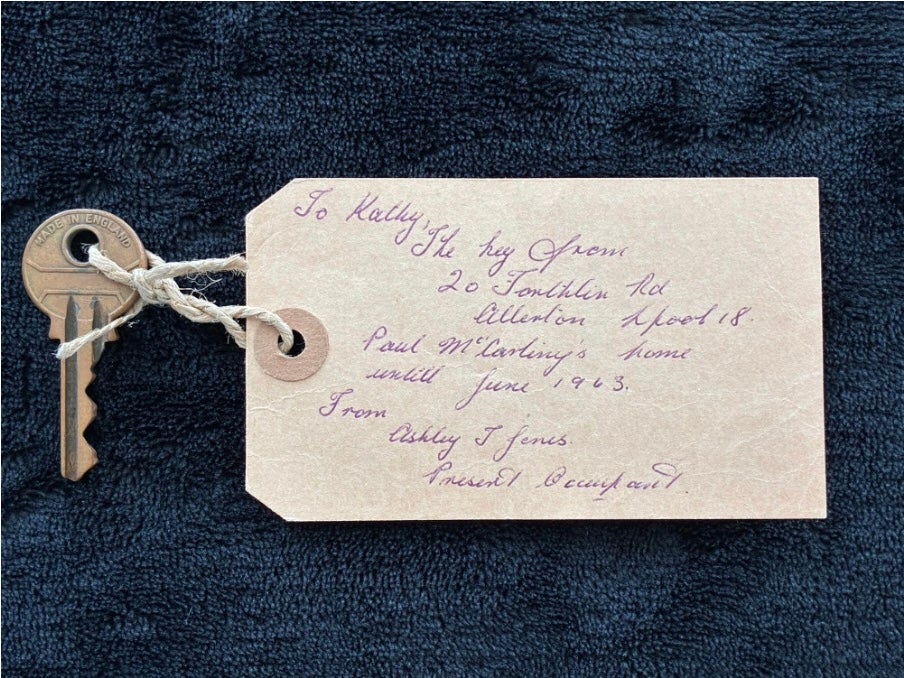 MADE IN ENGLAND
To Kathy,
The key from
20 Forthlin Rd
Allerton Lpool 18.
Paul McCartiny's home
untill June 1963.
From
Ashley T Jones.
Present Occupant.